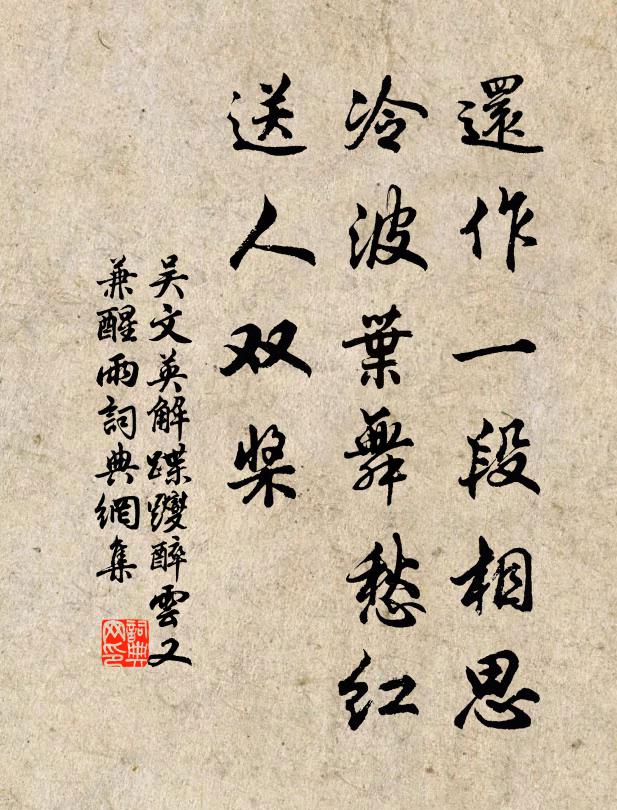 還作一段相思
冷波葉舞愁紅
送人双槳
吴文英解蹀躞醉雲又
兼醒雨詞典網集
詞典
网印